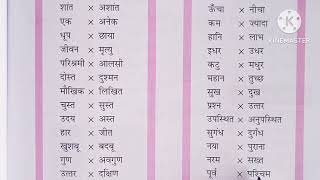 शांत × अशांत
एक × अनेक
धूप × छाया
जीवन × मृत्यु
परिश्रमी × आलसी
दोस्त × दुश्मन
मौखिक × लिखित
चुस्त × सुस्त
उदय × अस्त
हार × जीत
खुशबू × बदबू
गुण × अवगुण
उत्तर × दक्षिण
ऊँचा × नीचा
कम × ज्यादा
हानि × लाभ
इधर × उधर
कटु × मधुर
महान × तुच्छ
सुख × दुख
प्रश्न × उत्तर
उपस्थित × अनुपस्थित
सुगंध × दुर्गंध
नया × पुराना
नरम × सख्त
पूर्व × पश्चिम
KINEMASTER